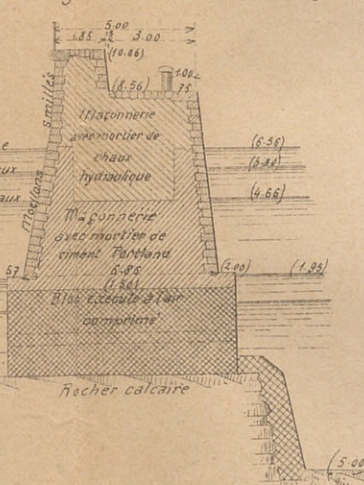 5.00
3.00
(10.06)
(8.56)
1.00
75
Moellons smillés
Maçonnerie
avec mortier de
chaux
hydraulique
(6.56)
(4.66)
Maçonnerie
avec mortier de
ciment Portland
6.85
(1.50)
57
(2.00)
(1.95)
Bloc exécuté à l'air
comprimé
Rocher calcaire
(5.00